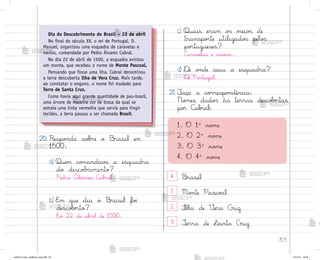 Dia do Descobrimento do Brasil – 22 de abril
No final do século XV, o rei de Portugal, D.
Manuel, organizou uma esquadra de caravelas e
navios, comandada por Pedro Álvares Cabral.
No dia 22 de abril de 1500, a esquadra avistou
um monte, que recebeu o nome de Monte Pascoal.
Pensando que fosse uma ilha, Cabral denominou
a terra descoberta Ilha de Vera Cruz. Mais tarde,
ao constatar o engano, o nome foi mudado para
Terra de Santa Cruz.
Como havia aqui grande quantidade de pau-brasil,
uma árvore de madeira cor de brasa da qual se
extraía uma tinta vermelha que servia para tingir
tecidos, a terra passou a ser chamada Brasil.
20. Responda sobre o Brasil em
1500:
a) Quem comandava a esquadra
do descobrimento?
Pedro Álvares Cabral.
b) Em que dia o Brasil foi
descoberto?
Em 22 de abril de 1500.
c) Quais eram os meios de
transporte utilizados pelos
portugueses?
Caravelas e navios.
d) De onde saiu a esquadra?
De Portugal.
21. Faça a correspondência:
Nomes dados às terras descobertas
por Cabral:
1. O 1º nome
2. O 2º nome
3. O 3º nome
4. O 4º nome
4 Brasil
1 Monte Pascoal
2 Ilha de Vera Cruz
3 Terra de Santa Cruz
83